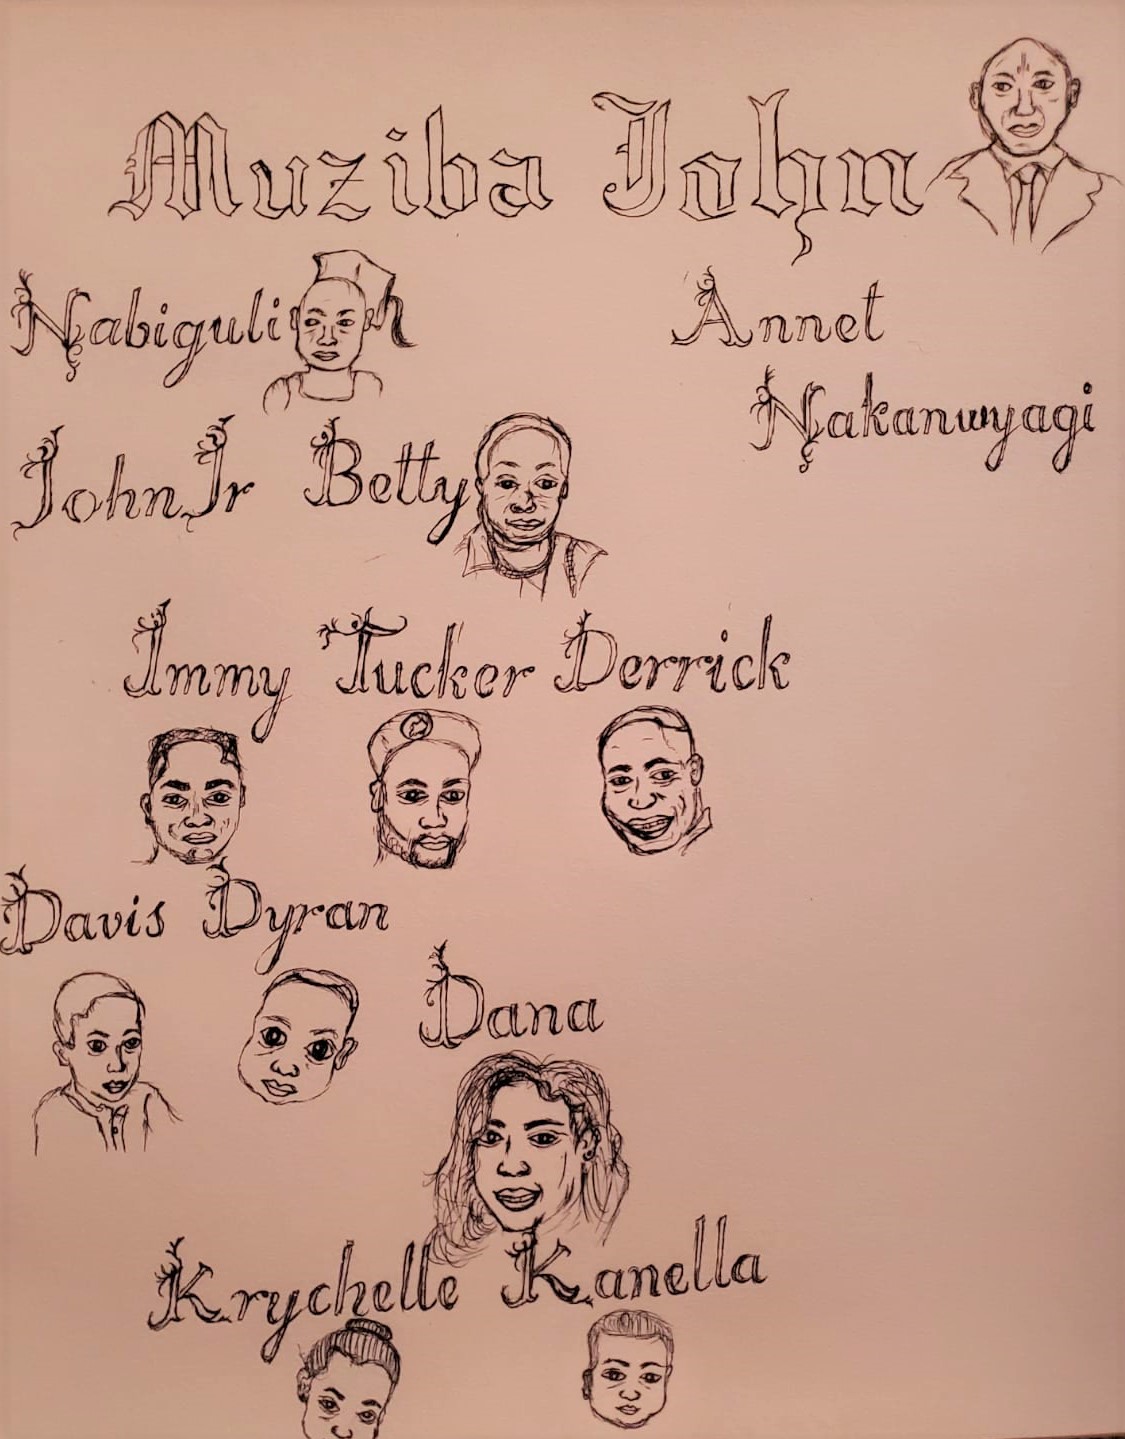 Muziba John
Nabiguli
Annet
Nakanwyagi
John Jr Betty
Immy Tucker Derrick
Davis Dyran
Dana
Krychelle Kanella